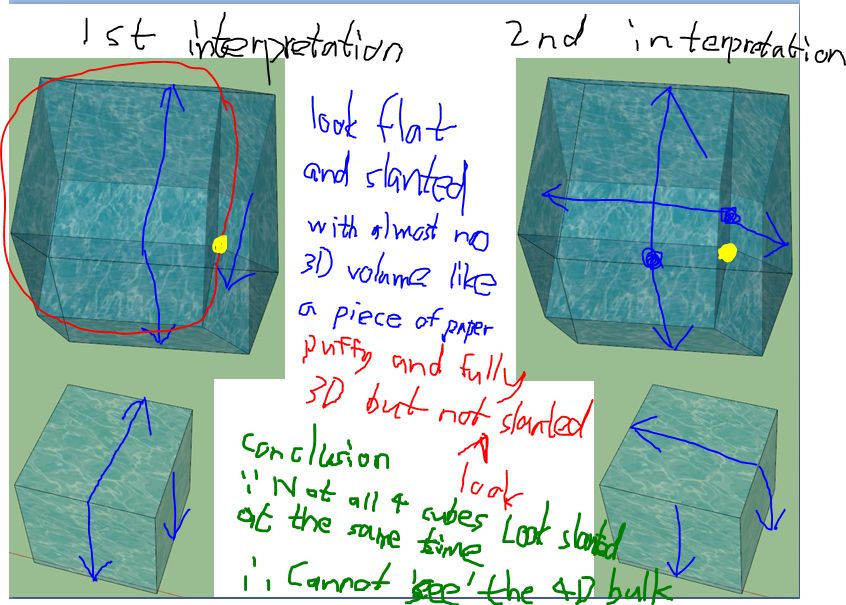 1st interpretation
2nd interpretation
look flat
and slanted
with almost no
3D volume like
a piece of paper
puffy and fully
3D but not slanted
look
Conclusion
∵ Not all 4 cubes Look slanted
at the same time
∴ Cannot 'see' the 4D bulk